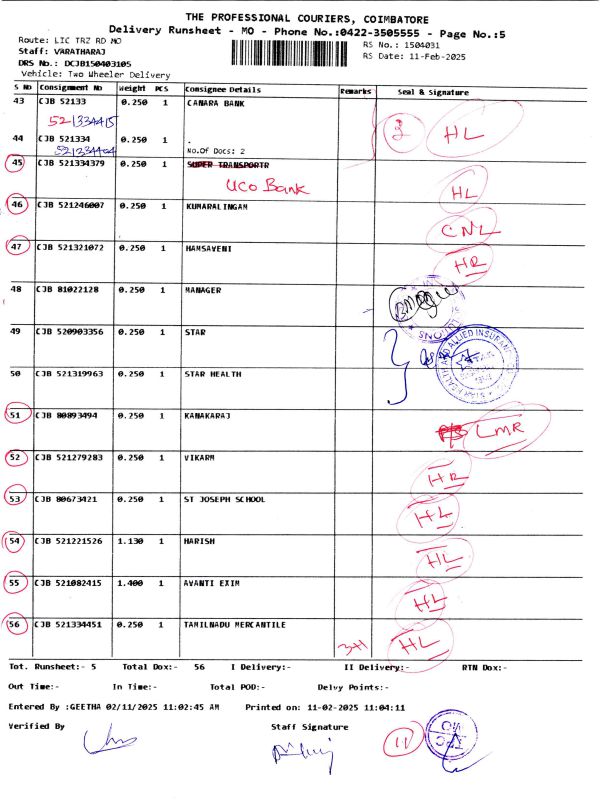 THE PROFESSIONAL COURIERS, COIMBATORE
Delivery Runsheet - MO - Phone No.:0422-3505555 - Page No.:5
Route: LIC TRZ RD MO
RS No.: 1504031
Staff: VARATHARAJ
RS Date: 11-Feb-2025
DRS No.: DCJB150403105
Vehicle: Two Wheeler Delivery
S No Consignment No Weight PCS Consignee Details Remarks Seal & Signature
43 CJB 52133 0.250 1 CANARA BANK
521334415
HL
44 CJB 521334 0.250 1 .
521334404 No.Of Docs: 2
45 CJB 521334379 0.250 1 SUPER TRANSPORTR
UCO Bank HL
46 CJB 521246007 0.250 1 KUMARALINGAM
CNL
47 CJB 521321072 0.250 1 HAMSAVENI
HR
48 CJB 81022128 0.250 1 MANAGER
49 CJB 520903356 0.250 1 STAR
STAR HEALTH AND ALLIED INSURANCE
50 CJB 521319963 0.250 1 STAR HEALTH
51 CJB 80893494 0.250 1 KANAKARAJ
LMR
52 CJB 521279283 0.250 1 VIKARM
HR
53 CJB 80673421 0.250 1 ST JOSEPH SCHOOL
HL
54 CJB 521221526 1.130 1 HARISH
HL
55 CJB 521082415 1.400 1 AVANTI EXIM
HL
56 CJB 521334451 0.250 1 TAMILNADU MERCANTILE
3+1 HL
Tot. Runsheet:- 5 Total Dox:- 56 I Delivery:- II Delivery:- RTN Dox:-
Out Time:- In Time:- Total POD:- Delvy Points:-
Entered By :GEETHA 02/11/2025 11:02:45 AM Printed on: 11-02-2025 11:04:11
Verified By Staff Signature
11
TPC
MO